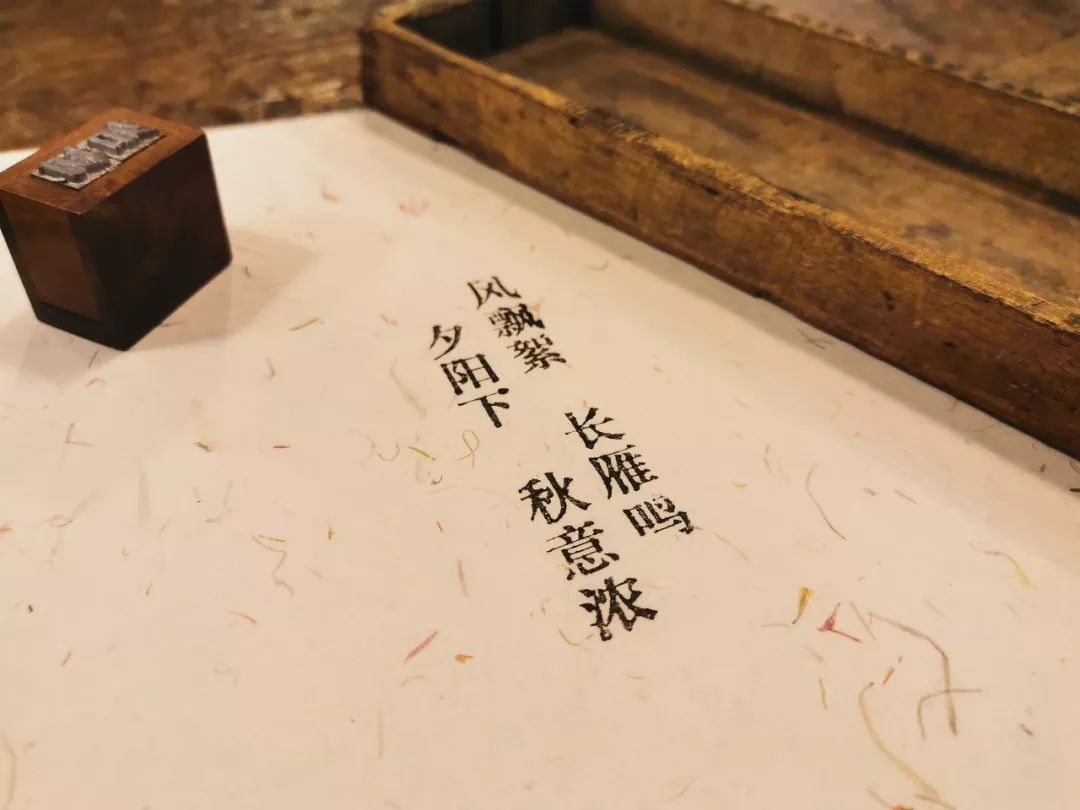 风飘絮 长雁鸣
夕阳下 秋意浓